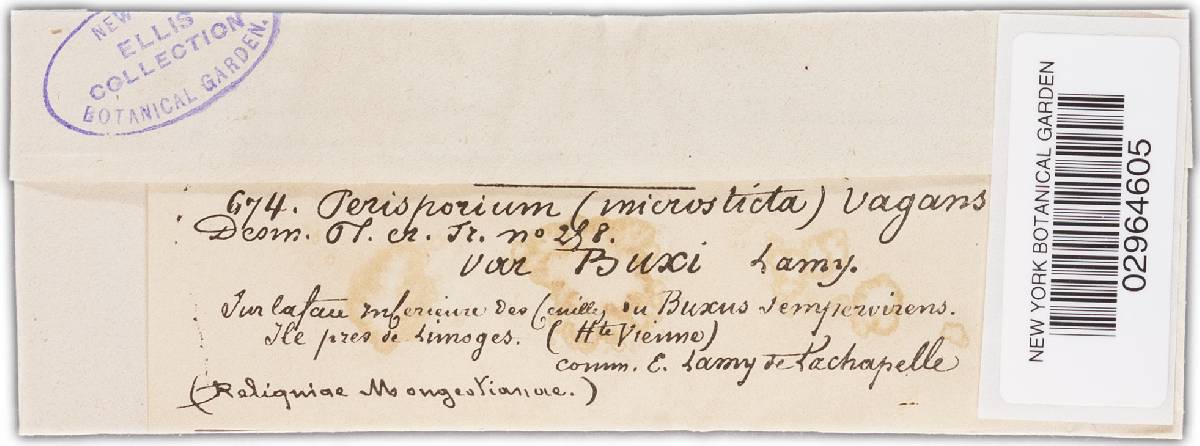 NEW
ELLIS
COLLECTION
BOTANICAL GARDEN.
674. Perisporium (microsticta) Vagans
Desm. Pl. cr. Fr. no 298.
Var Buxi Lamy.
Sur la face inferieure des feuilles du Buxus sempervirens.
Ile pres de Limoges. (Hte Vienne)
comm. E. Lamy de Lachapelle
(Reliquiae Mongeotianae.)
NEW YORK BOTANICAL GARDEN
02964605